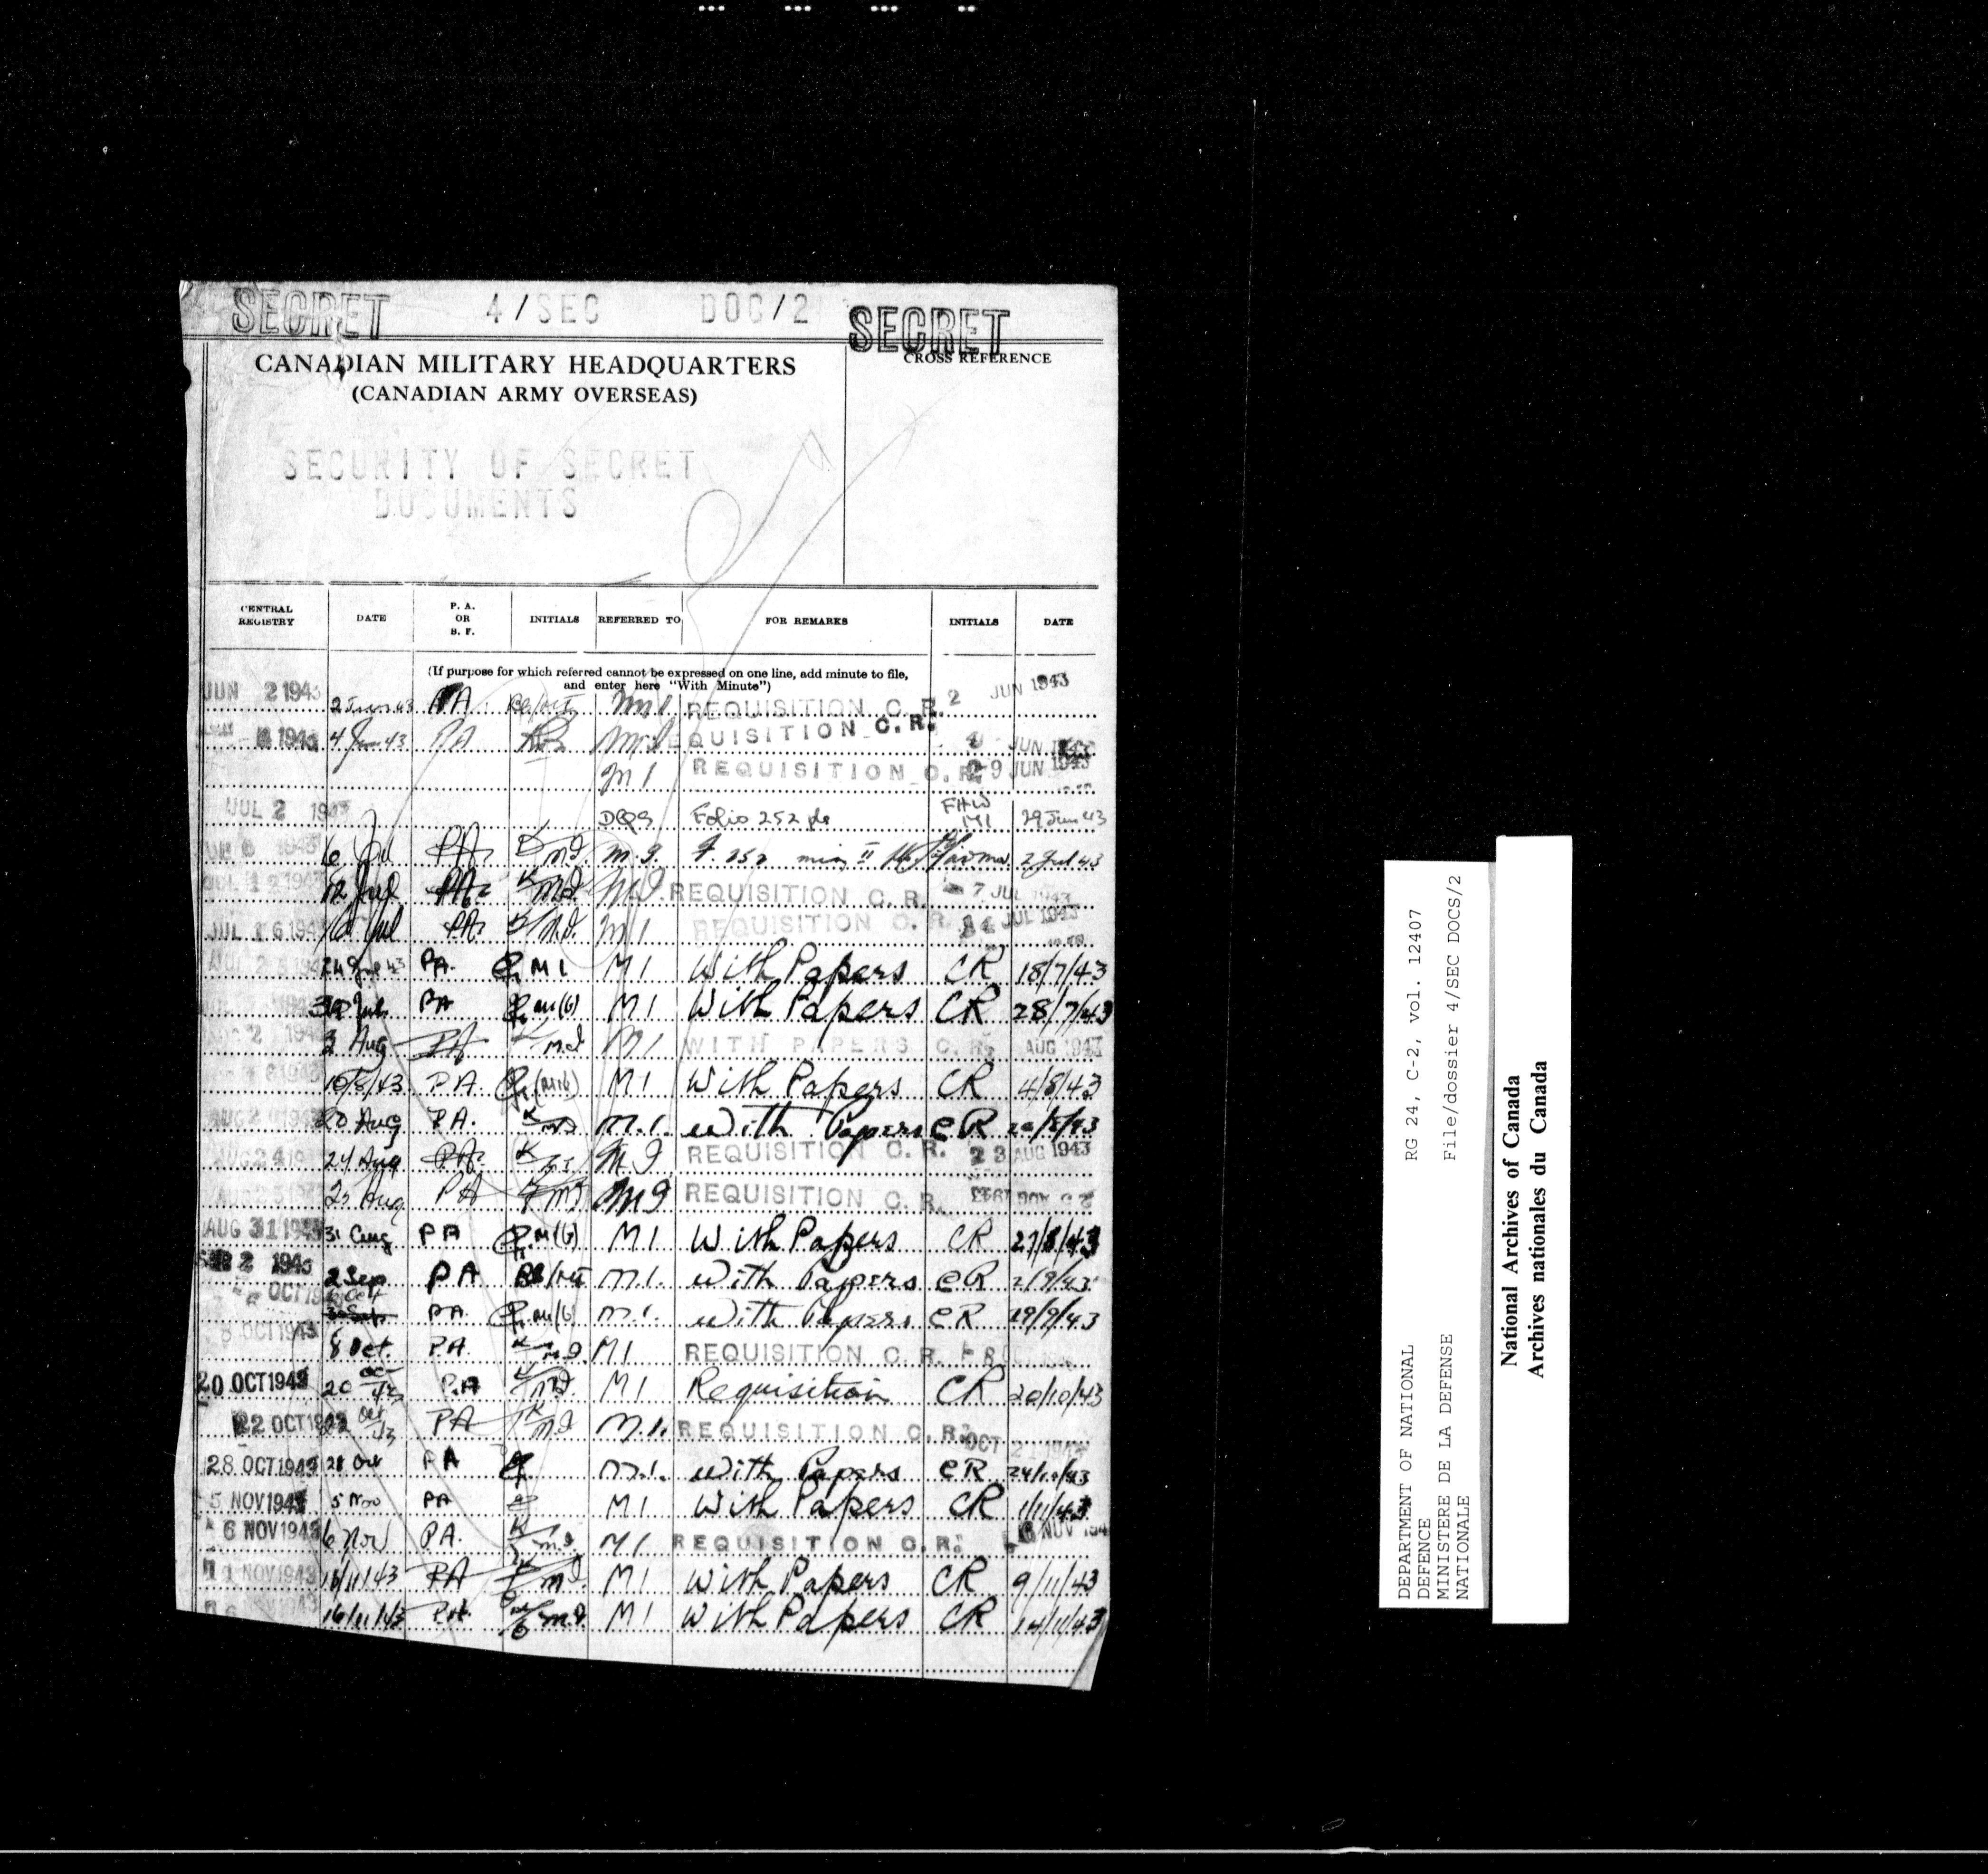 SECRET 4/SEC DOC/2 SECRET
CANADIAN MILITARY HEADQUARTERS
(CANADIAN ARMY OVERSEAS)
CROSS REFERENCE
SECURITY OF SECRET
DOCUMENTS
CENTRAL REGISTRY DATE P. A. OR B. F. INITIALS REFERRED TO FOR REMARKS INITIALS DATE
(If purpose for which referred cannot be expressed on one line, add minute to file,
and enter here "With Minute")
JUN 2 1943 2 Jun 43 PA MI REQUISITION C. R. 2 JUN 1943
1943 4 Jun 43 PA MI REQUISITION C. R. JUN
MI REQUISITION C. R. 29 JUN 1943
JUL 2 1943 DQS Folio 252 FHW MI 29 Jun 43
6 Jul PA MI 252 min II 2 Jul 43
JUL 12 1943 12 Jul PA MI MI REQUISITION C. R. 7 JUL 1943
JUL 16 194 Jul PA MI MI REQUISITION C. R. JUL 1943
24 43 PA. MI MI With Papers CR 18/7/43
PA MI With Papers CR 28/7/43
2 3 Aug PA MI MI WITH PAPERS C. R. AUG 1943
10/8/43 PA. MI With Papers CR 4/8/43
AUG 2 20 Aug PA. M.I. With Papers CR 20/8/43
AUG 24 24 Aug PA. MI REQUISITION C. R. 23 AUG 1943
AUG 25 25 Aug PA MI MI REQUISITION C. R. 25 AUG 1943
AUG 31 1943 31 Aug PA MI With Papers CR 27/8/43
SEP 2 1943 2 Sep PA M.I. With Papers CR 2/9/43
OCT 19 6 Oct 30 Sep PA M.I. With Papers CR 29/9/43
8 OCT 1943 8 Oct. PA. MI MI REQUISITION C. R.
20 OCT 1943 20 Oct 43 PA MI MI Requisition CR 20/10/43
22 OCT 1943 22 Oct 43 PA MI M.I. REQUISITION C. R. OCT 2
28 OCT 1943 28 Oct PA M.I. With Papers CR 24/10/43
5 NOV 1943 5 Nov PA MI With Papers CR 1/11/43
6 NOV 1943 6 Nov PA. M.I. MI REQUISITION C. R. 6 NOV 194
11 NOV 1943 11/11/43 PA MI MI With Papers CR 9/11/43
16/11/43 PA. M.I. MI With Papers CR 14/11/43
DEPARTMENT OF NATIONAL DEFENCE
MINISTERE DE LA DEFENSE NATIONALE
RG 24, C-2, vol. 12407
File/dossier 4/SEC DOCS/2
National Archives of Canada
Archives nationales du Canada